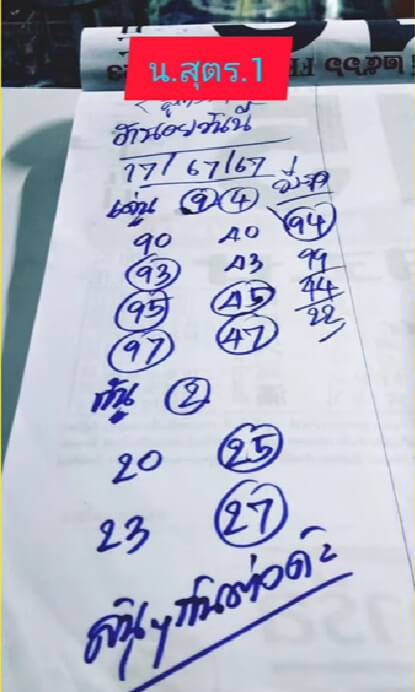 น.สุตร.1
ฮานอยวันนี้
17/ 67/67
เด่น 9 4
94
90 40
93 43 99
95 45 44
97 47 22
กัน 2
20 25
23 27
ลุ้นๆกันต่อค่ะ